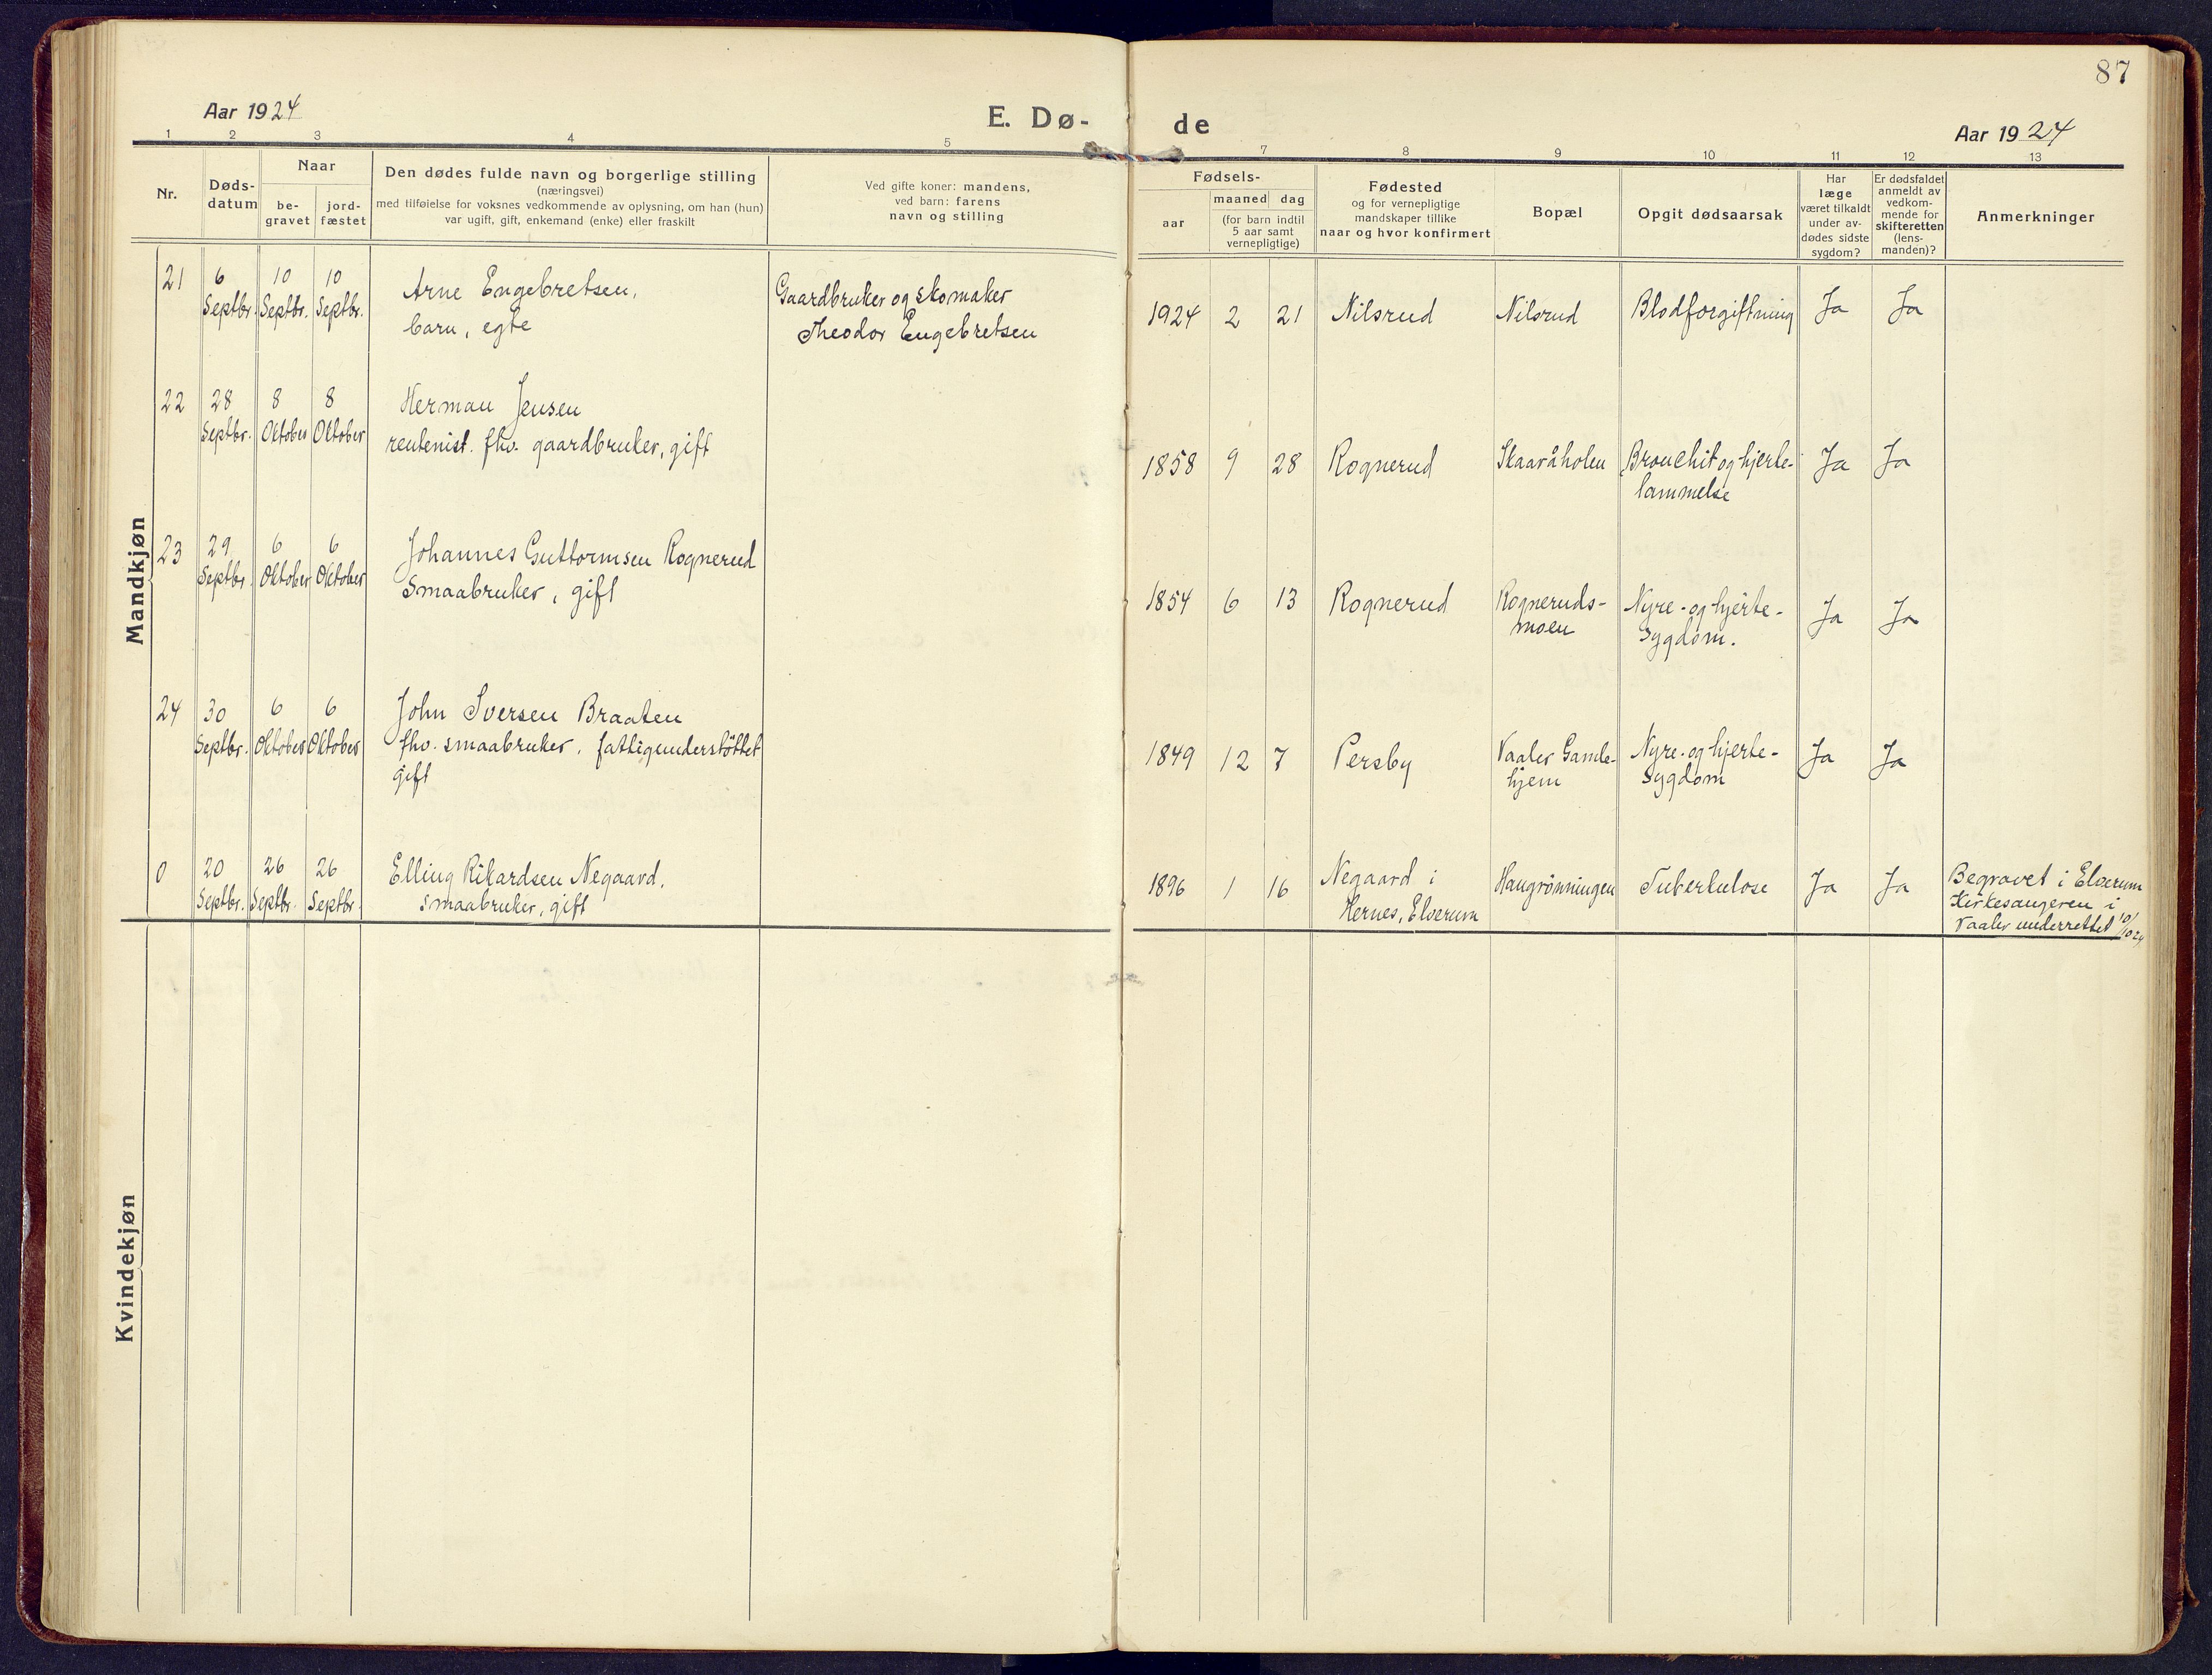 87
Aar 1924
E. Dø-
de
Aar 1924
1 2 3 4 5 7 8 9 10 11 12 13
Nr.
Døds-
datum
Naar
be-
gravet
jord-
fæstet
Den dødes fulde navn og borgerlige stilling
(næringsvei)
med tilføielse for voksnes vedkommende av oplysning, om han (hun)
var ugift, gift, enkemand (enke) eller fraskilt
Ved gifte koner: mandens,
ved barn: farens
navn og stilling
Fødsels-
aar
maaned dag
(for barn indtil
5 aar samt
vernepligtige)
Fødested
og for vernepligtige
mandskaper tillike
naar og hvor konfirmert
Bopæl
Opgit dødsaarsak
Har
læge
været tilkaldt
under av-
dødes sidste
sygdom?
Er dødsfaldet
anmeldt av
vedkom-
mende for
skifteretten
(lens-
manden)?
Anmerkninger
Mandkjøn
21
6
Septbr.
10
Septbr.
10
Septbr.
Arne Engebretsen,
barn, egte
Gaardbruker og skomaker
Theodor Engebretsen
1924 2 21
Nilsrud
Nilsrud
Blodforgiftning
Ja
Ja
22
28
Septbr.
8
Oktober
8
Oktober
Herman Jensen
rentenist. fhv. gaardbruker, gift
1858 9 28
Rognerud
Skaaråholen
Bronchit og hjerte-
lammelse
Ja
Ja
23
29
Septbr.
6
Oktober
6
Oktober
Johannes Guttormsen Rognerud
Smaabruker, gift
1854 6 13
Rognerud
Rogneruds-
moen
Nyre- og hjerte-
sygdom.
Ja
Ja
24
30
Septbr.
6
Oktober
6
Oktober
John Iversen Braaten
fhv. smaabruker, fattigunderstöttet
gift
1849 12 7
Persby
Vaaler Gamle-
hjem
Nyre- og hjerte-
sygdom
Ja
Ja
0
20
Septbr.
26
Septbr.
26
Septbr.
Elling Rikardsen Negaard,
smaabruker, gift
1896 1 16
Negaard i
Hernes, Elverum
Haugrønningen
Tuberkulose
Ja
Ja
Begravet i Elverum
Kirkesangeren i
Vaaler underrettet 10/10 24
Kvindekjøn